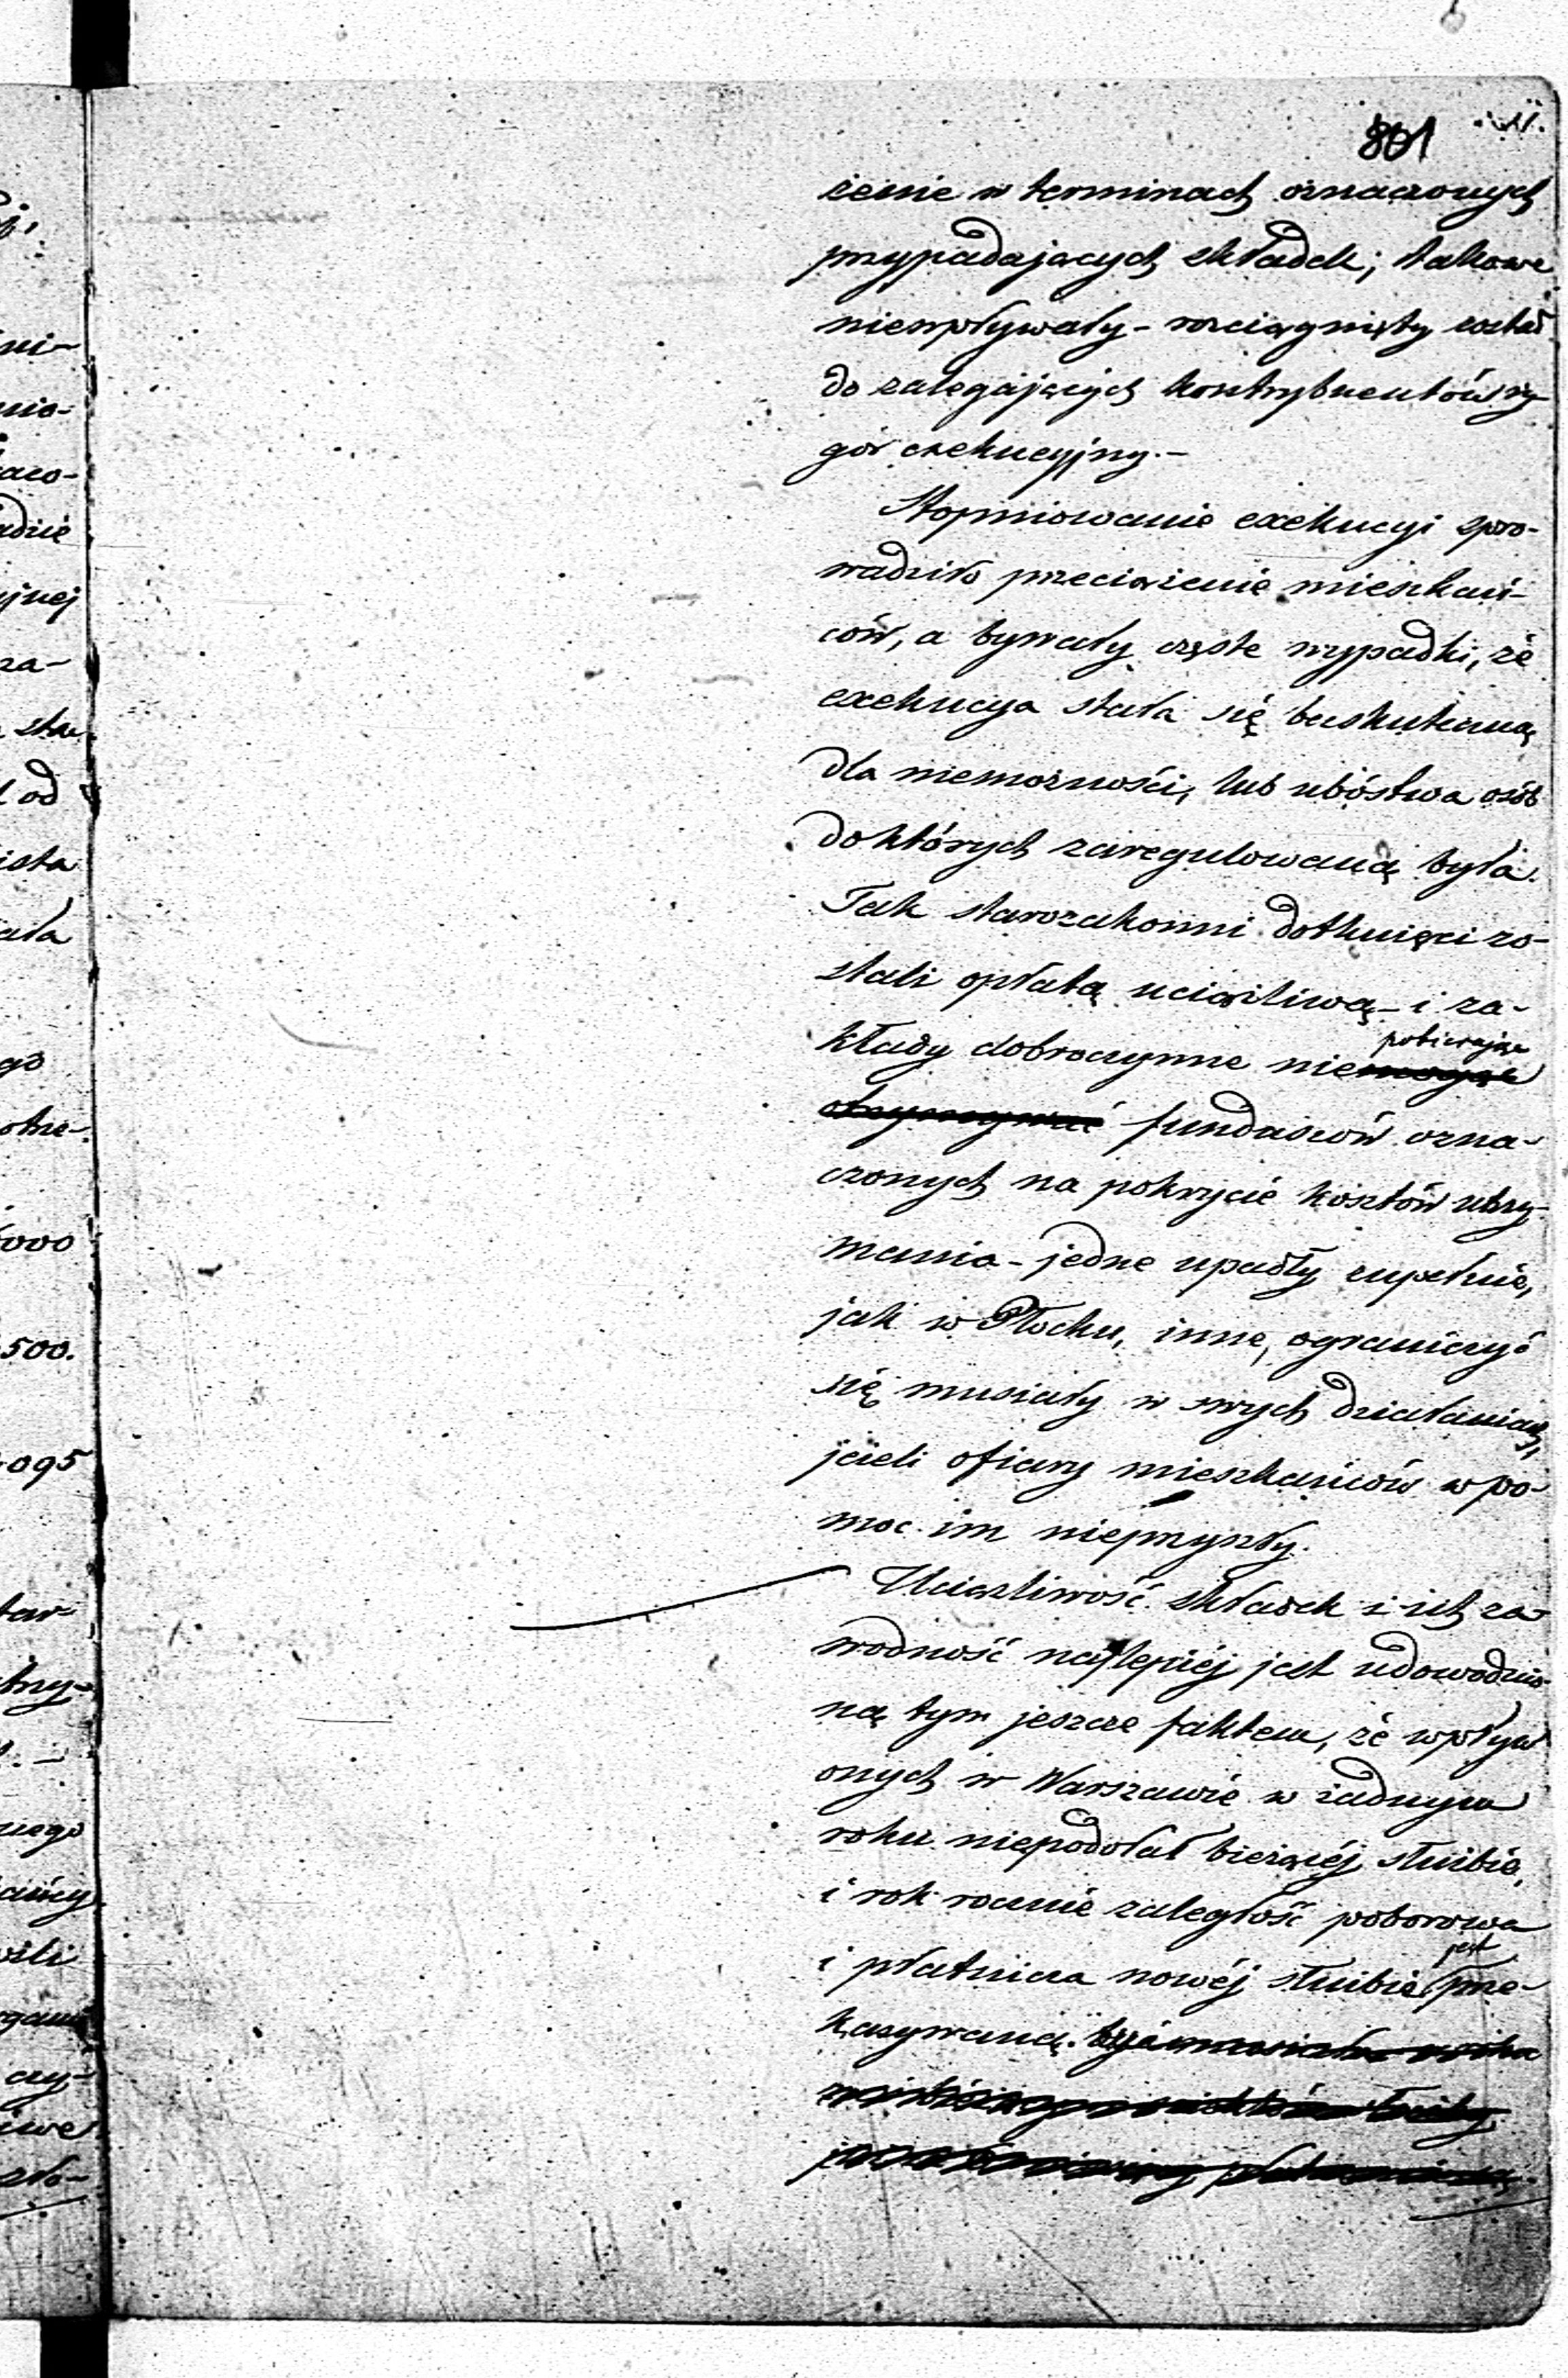 801
żenie w terminach oznaczonych
przypadających składek; takowe
niewpływały - rozciągnięty został
do zalegających kontrybuentów ry-
gór exekucyjny. -
Stopniowanie exekucyi spro-
wadziło przeciążenie mieszkań-
ców, a bywały częste wypadki, że
exekucya stała się bezskuteczną
dla niemożności, lub ubóstwa osób
do których zaregulowaną była.
Tak starozakonni dotknięci zo-
stali opłatą uciążliwą - i za-
pobierając
kłady dobroczynne nie mogąc
otrzymywać funduszów ozna-
czonych na pokrycie kosztów utrzy-
mania - jedne upadły zupełnie,
jak w Płocku, inne, ograniczyć
się musiały w swych działaniach,
jeżeli ofiary mieszkańców w po-
moc im nieprzyszły.
Uciążliwość składek i ich za-
wodność najlepiéj jest udowodnio-
ną tym jeszcze faktem, że wpływ
onych w Warszawie w żadnym
roku niepodołał bieżącéj służbie,
i rok rocznie zaległość poborowa
jest
i płatnicza nowéj służbie prze-
kazywaną.
ni-
nio-
adzie
jnej
za-
od
ista
ała
go
000
500.
095
nego
czy-
iwe